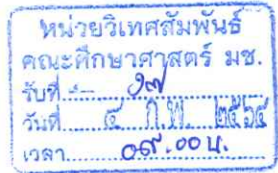 หน่วยวิเทศสัมพันธ์
คณะศึกษาศาสตร์ มช.
รับที่ ๑๗
วันที่ ๔ ก.พ. ๒๕๖๔
เวลา ๐๙.๐๐ น.